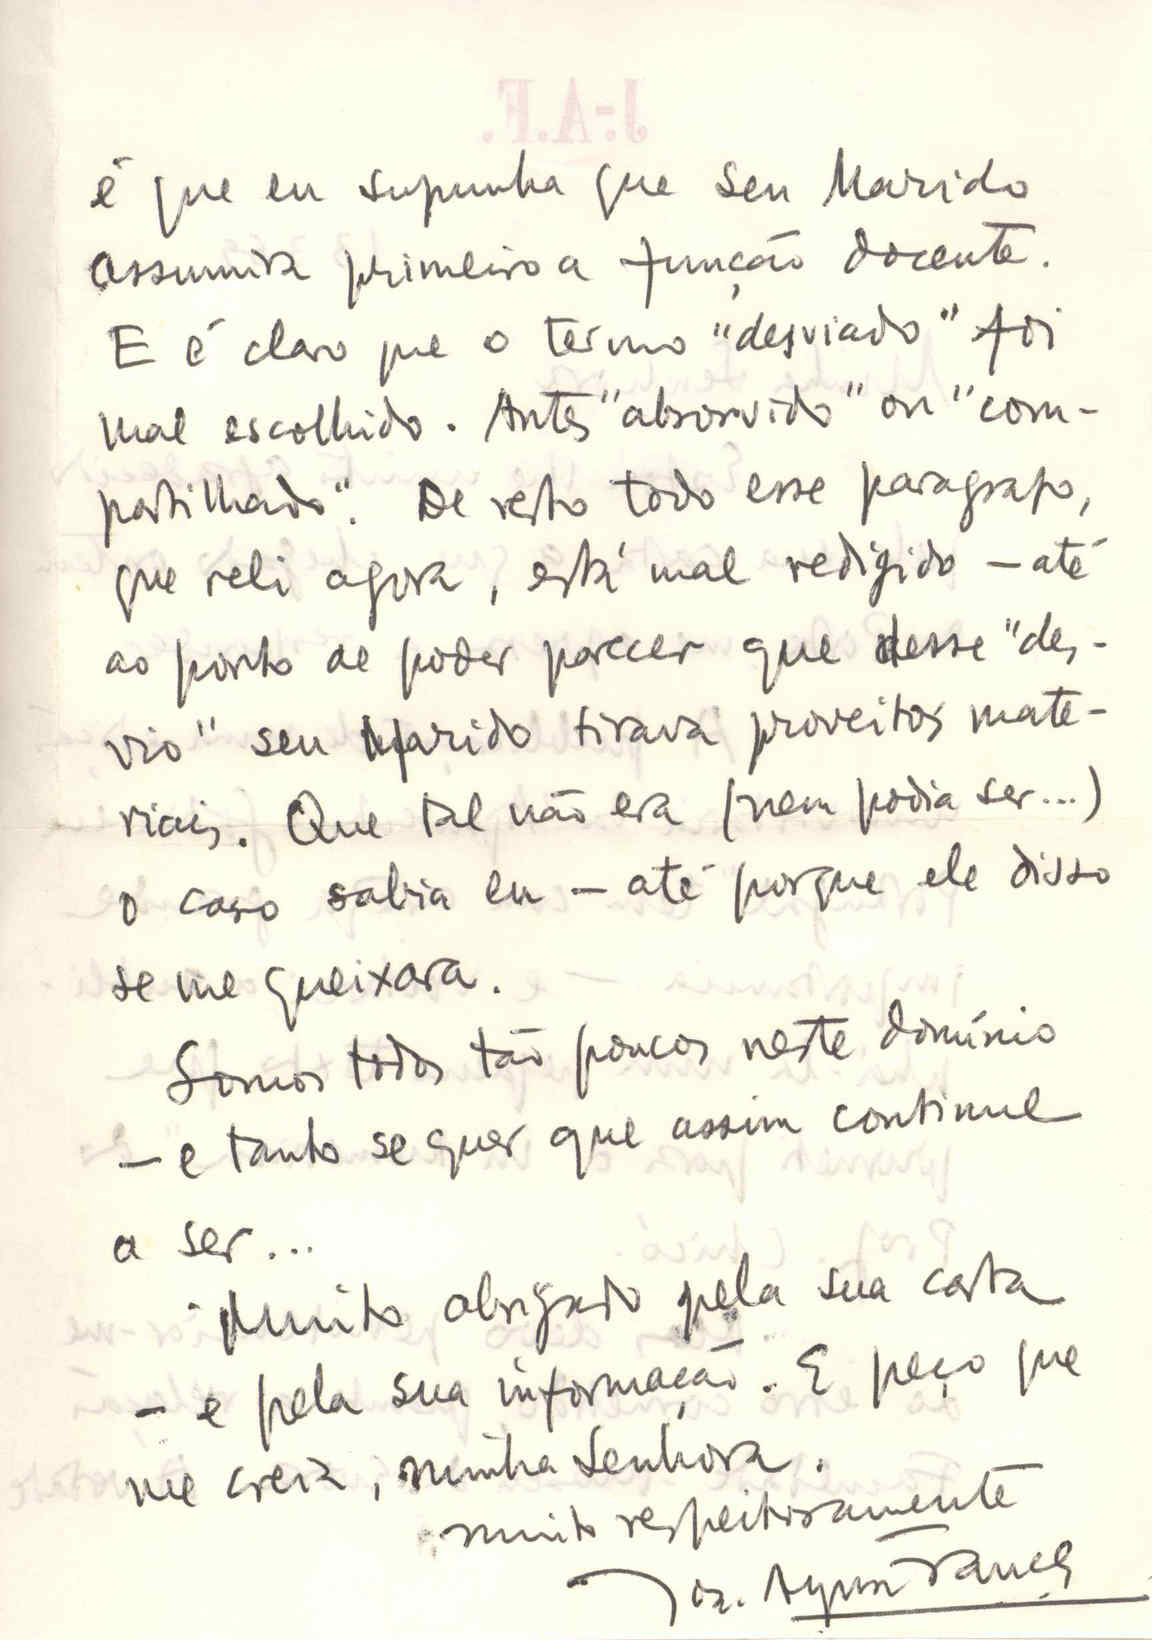 J.-A.F.
é que eu supunha que seu Marido
assumira primeiro a função docente.
E é claro que o termo "desviado" foi
mal escolhido. Antes "absorvido" ou "com-
partilhado". De resto todo esse paragrafo,
que reli agora, está mal redigido — até
ao ponto de poder parecer que desse "des-
vio" seu Marido tirava proveitos mate-
riais. Que tal não era (nem podia ser...)
o caso sabia eu — até porque ele disso
se me queixara.
Somos todos tão poucos neste domínio
— e tanto se quer que assim continue
a ser...
Muito obrigado pela sua carta
— e pela sua informação. E peço que
me creia, minha Senhora,
muito respeitosamente